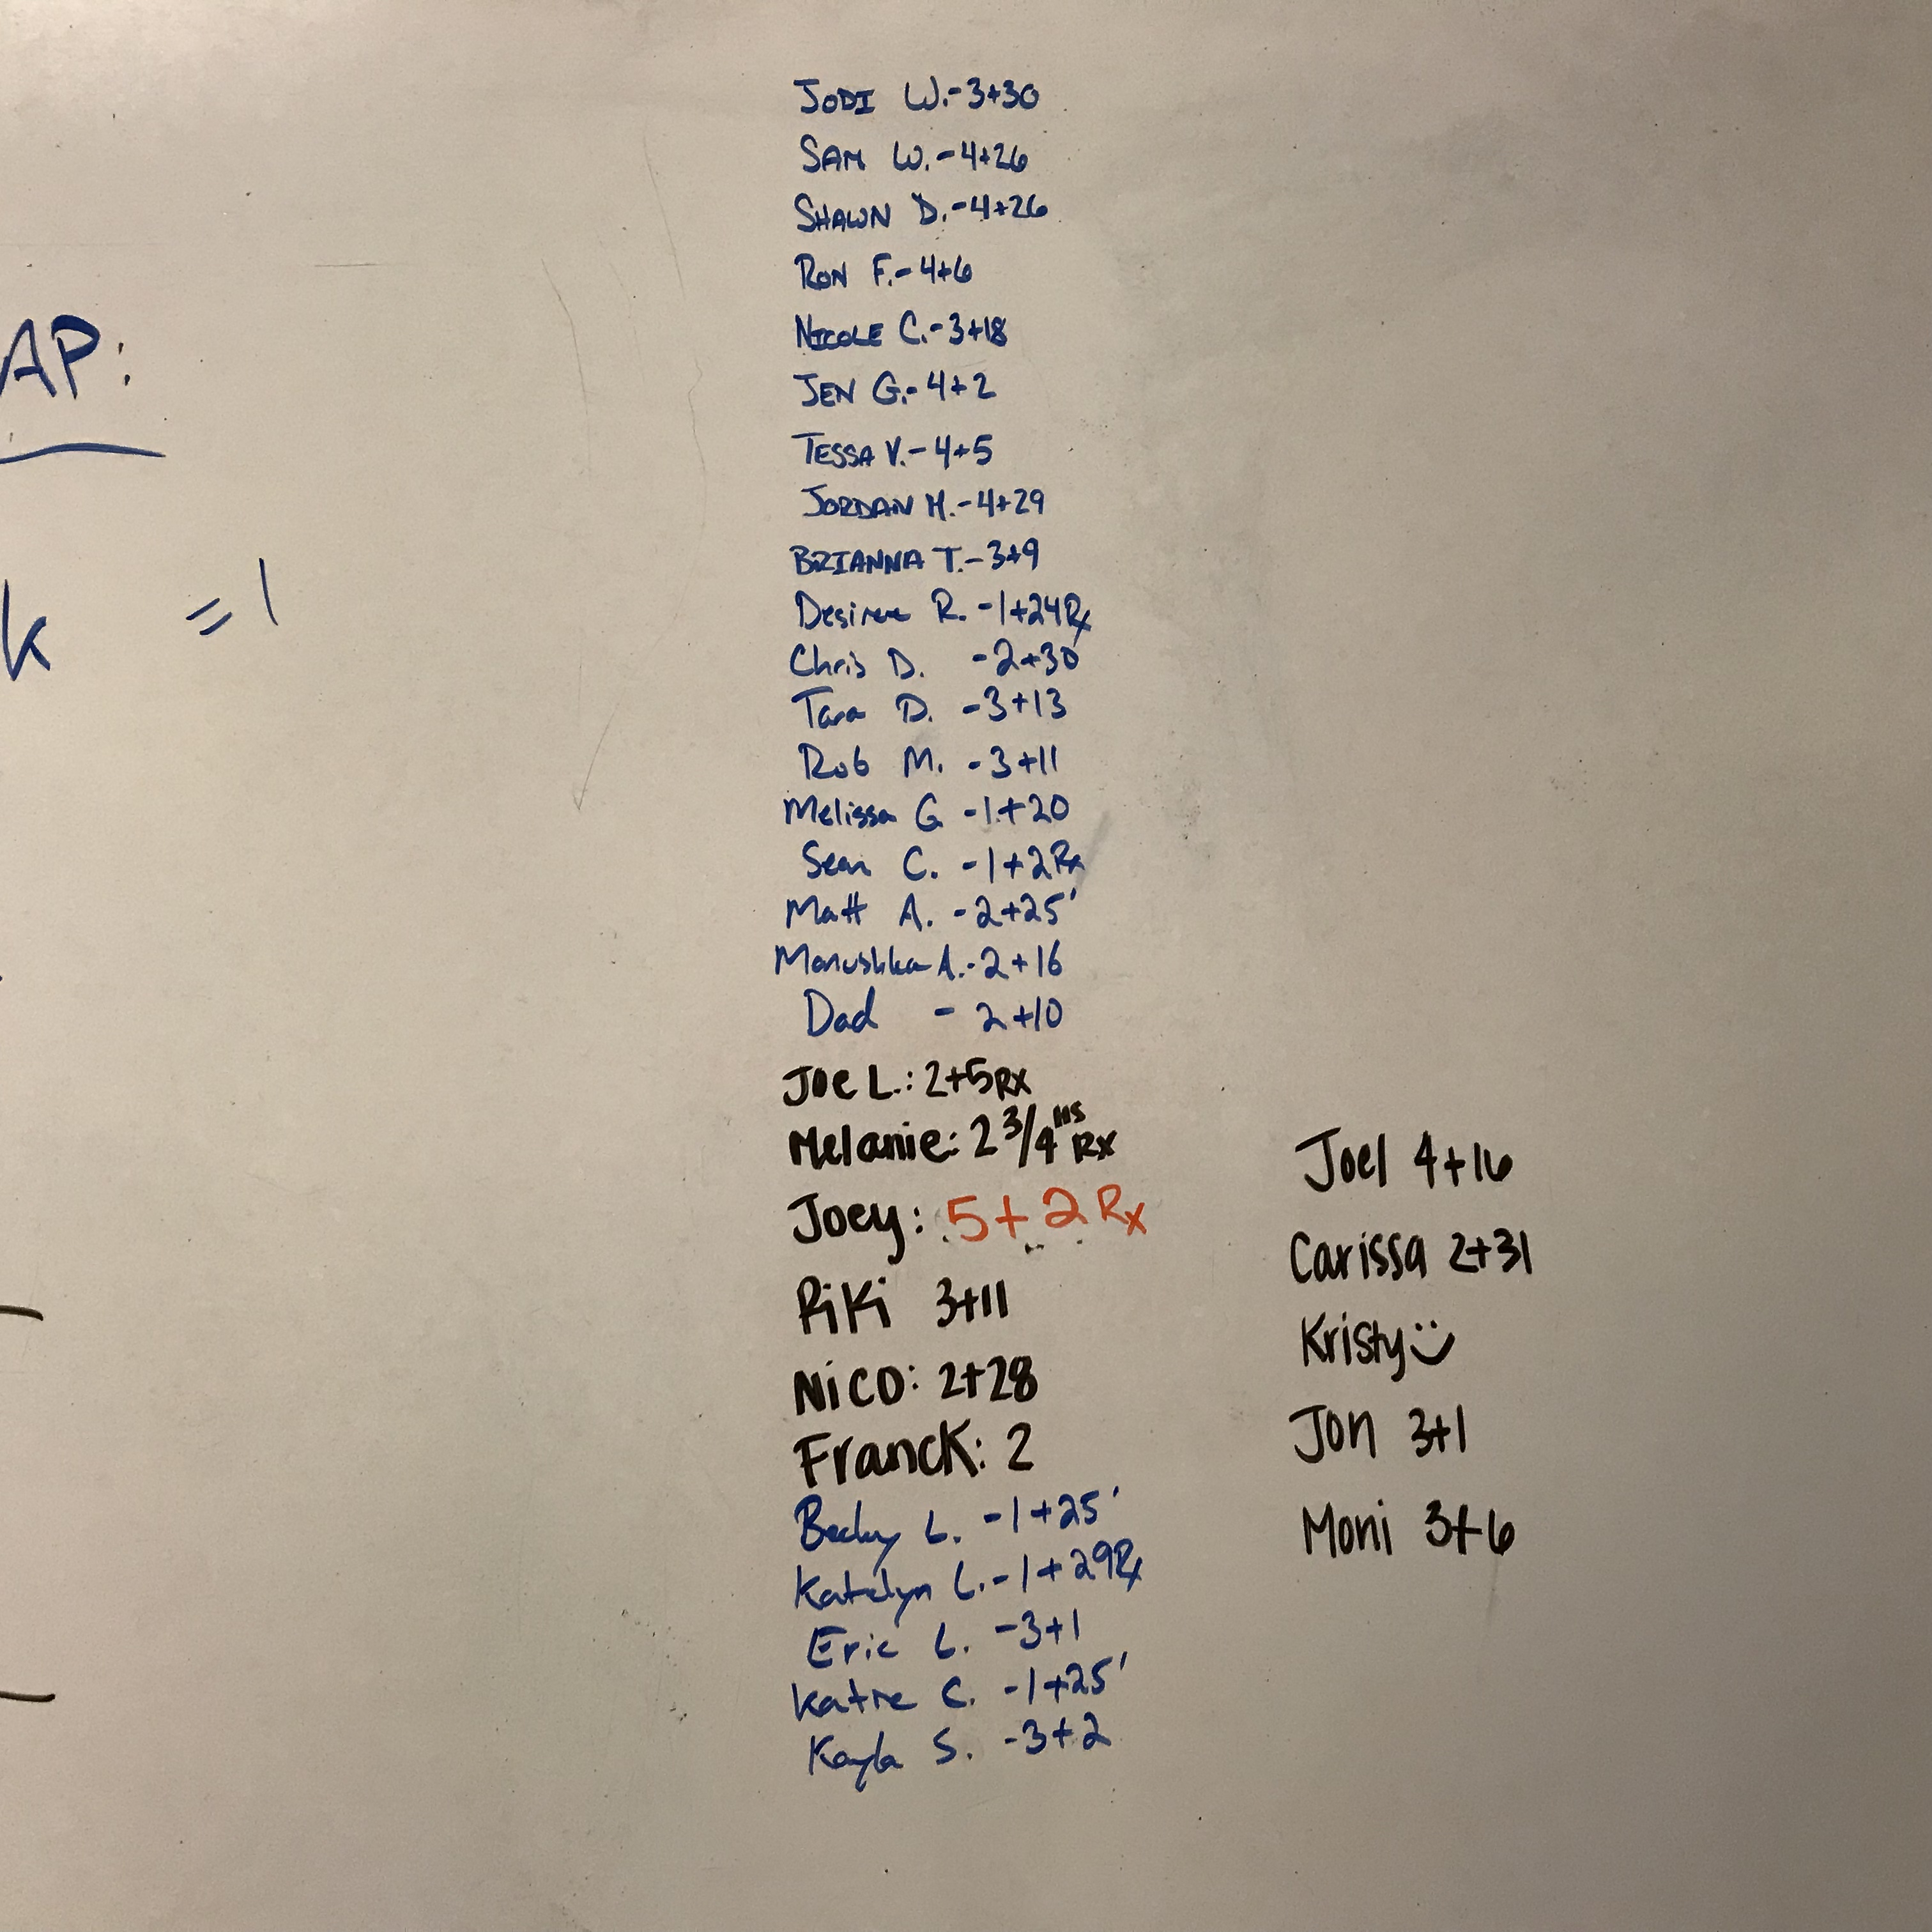 AP:
k = 1
JODI W.-3+30
SAM W.-4+26
SHAWN D.-4+26
RON F.-4+6
NICOLE C.-3+18
JEN G.-4+2
TESSA V.-4+5
JORDAN M.-4+29
BRIANNA T.-3+9
Desiree R. -1+24Rx
Chris D. -2+30
Tara D. -3+13
Rob M. -3+11
Melissa G -1+20
Sean C. -1+2Rx
Matt A. -2+25'
Manushka A.-2+16
Dad - 2+10
Joe L.: 2+5RX
Melanie: 2 3/4 RX
Joey: 5+2 Rx
Riki 3+11
Nico: 2+28
Franck: 2
Becky L. -1+25'
Katelyn L.-1+29Rx
Eric L. -3+1
Katie C. -1+25'
Kayla S. -3+2
Joel 4+16
Carissa 2+31
Kristy
Jon 3+1
Moni 3+6